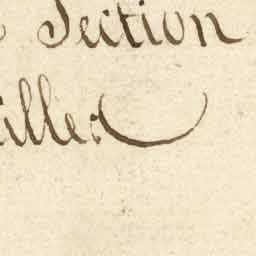 Section
iller